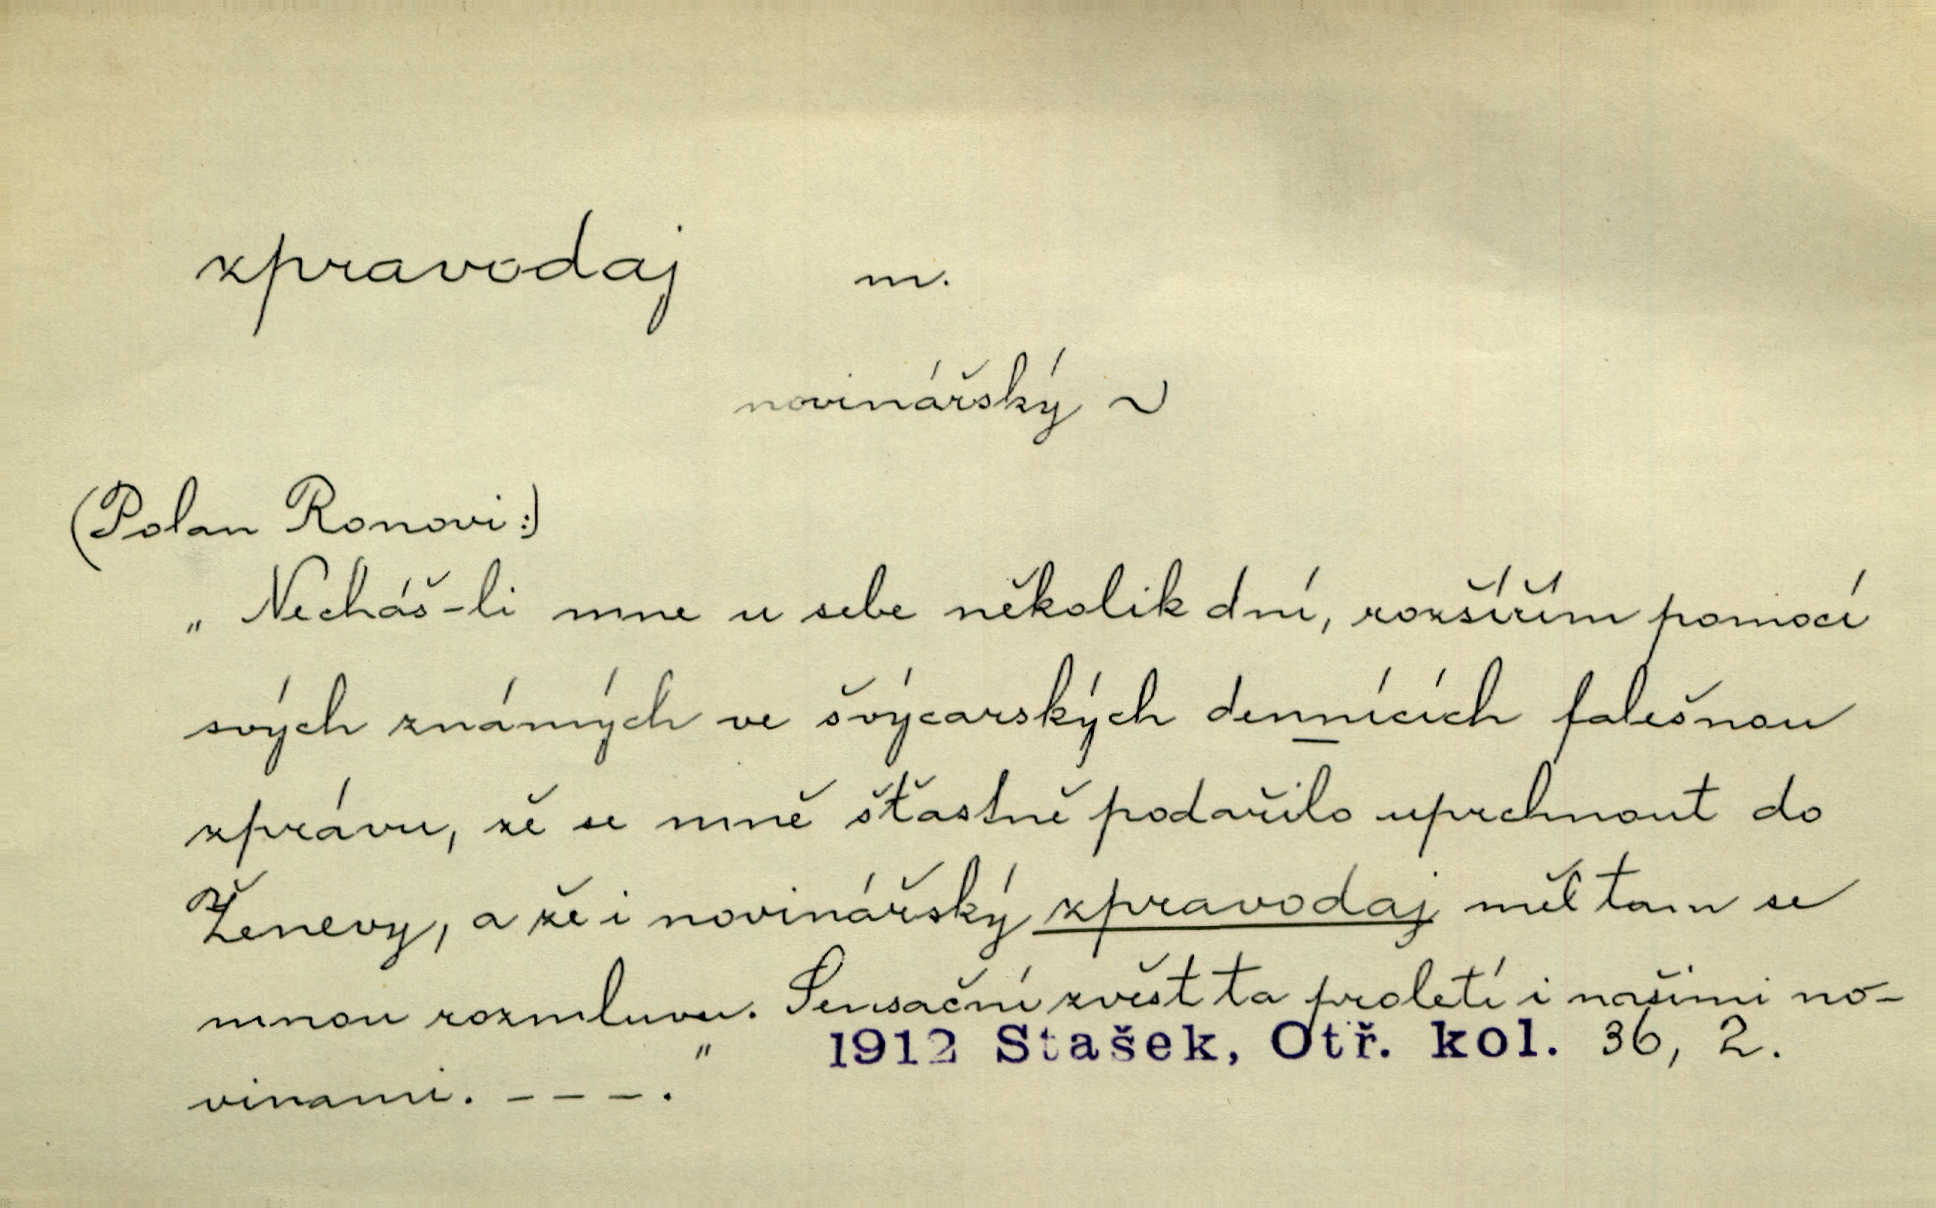 zpravodaj m.
novinářský ~
(Polan Ronovi:)
„Necháš-li mne u sebe několik dní, rozšířím pomocí
svých známých ve švýcarských dennících falešnou
zprávu, že se mně šťastně podařilo uprchnout do
Ženevy, a že i novinářský zpravodaj měl tam se
mnou rozmluvu. Sensační zvěst ta proletí i našimi no-
vinami. ---."
1912 Stašek, Otř. kol. 36, 2.